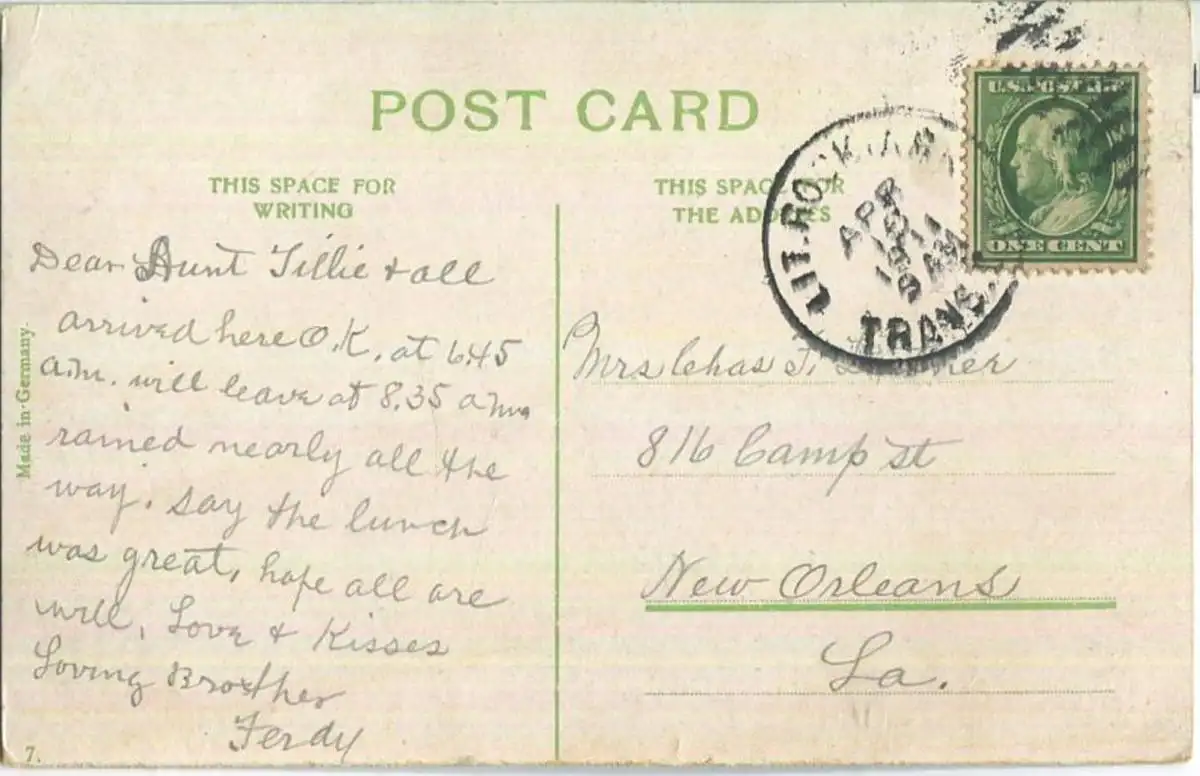 POST CARD
THIS SPACE FOR
WRITING
THIS SPACE FOR
THE ADDRESS
Dear Aunt Tillie & all
arrived here O.K. at 6.45
a.m. will leave at 8.35 a.m.
rained nearly all the
way. say the lunch
was great, hope all are
well, Love & Kisses
Loving Brother
Ferdy
Made in Germany.
7.
LIT. ROCK
APR
1911
9 AM
TRANS.
U.S. POSTAGE
ONE CENT
Mrs Chas
816 Camp st
New Orleans
La.